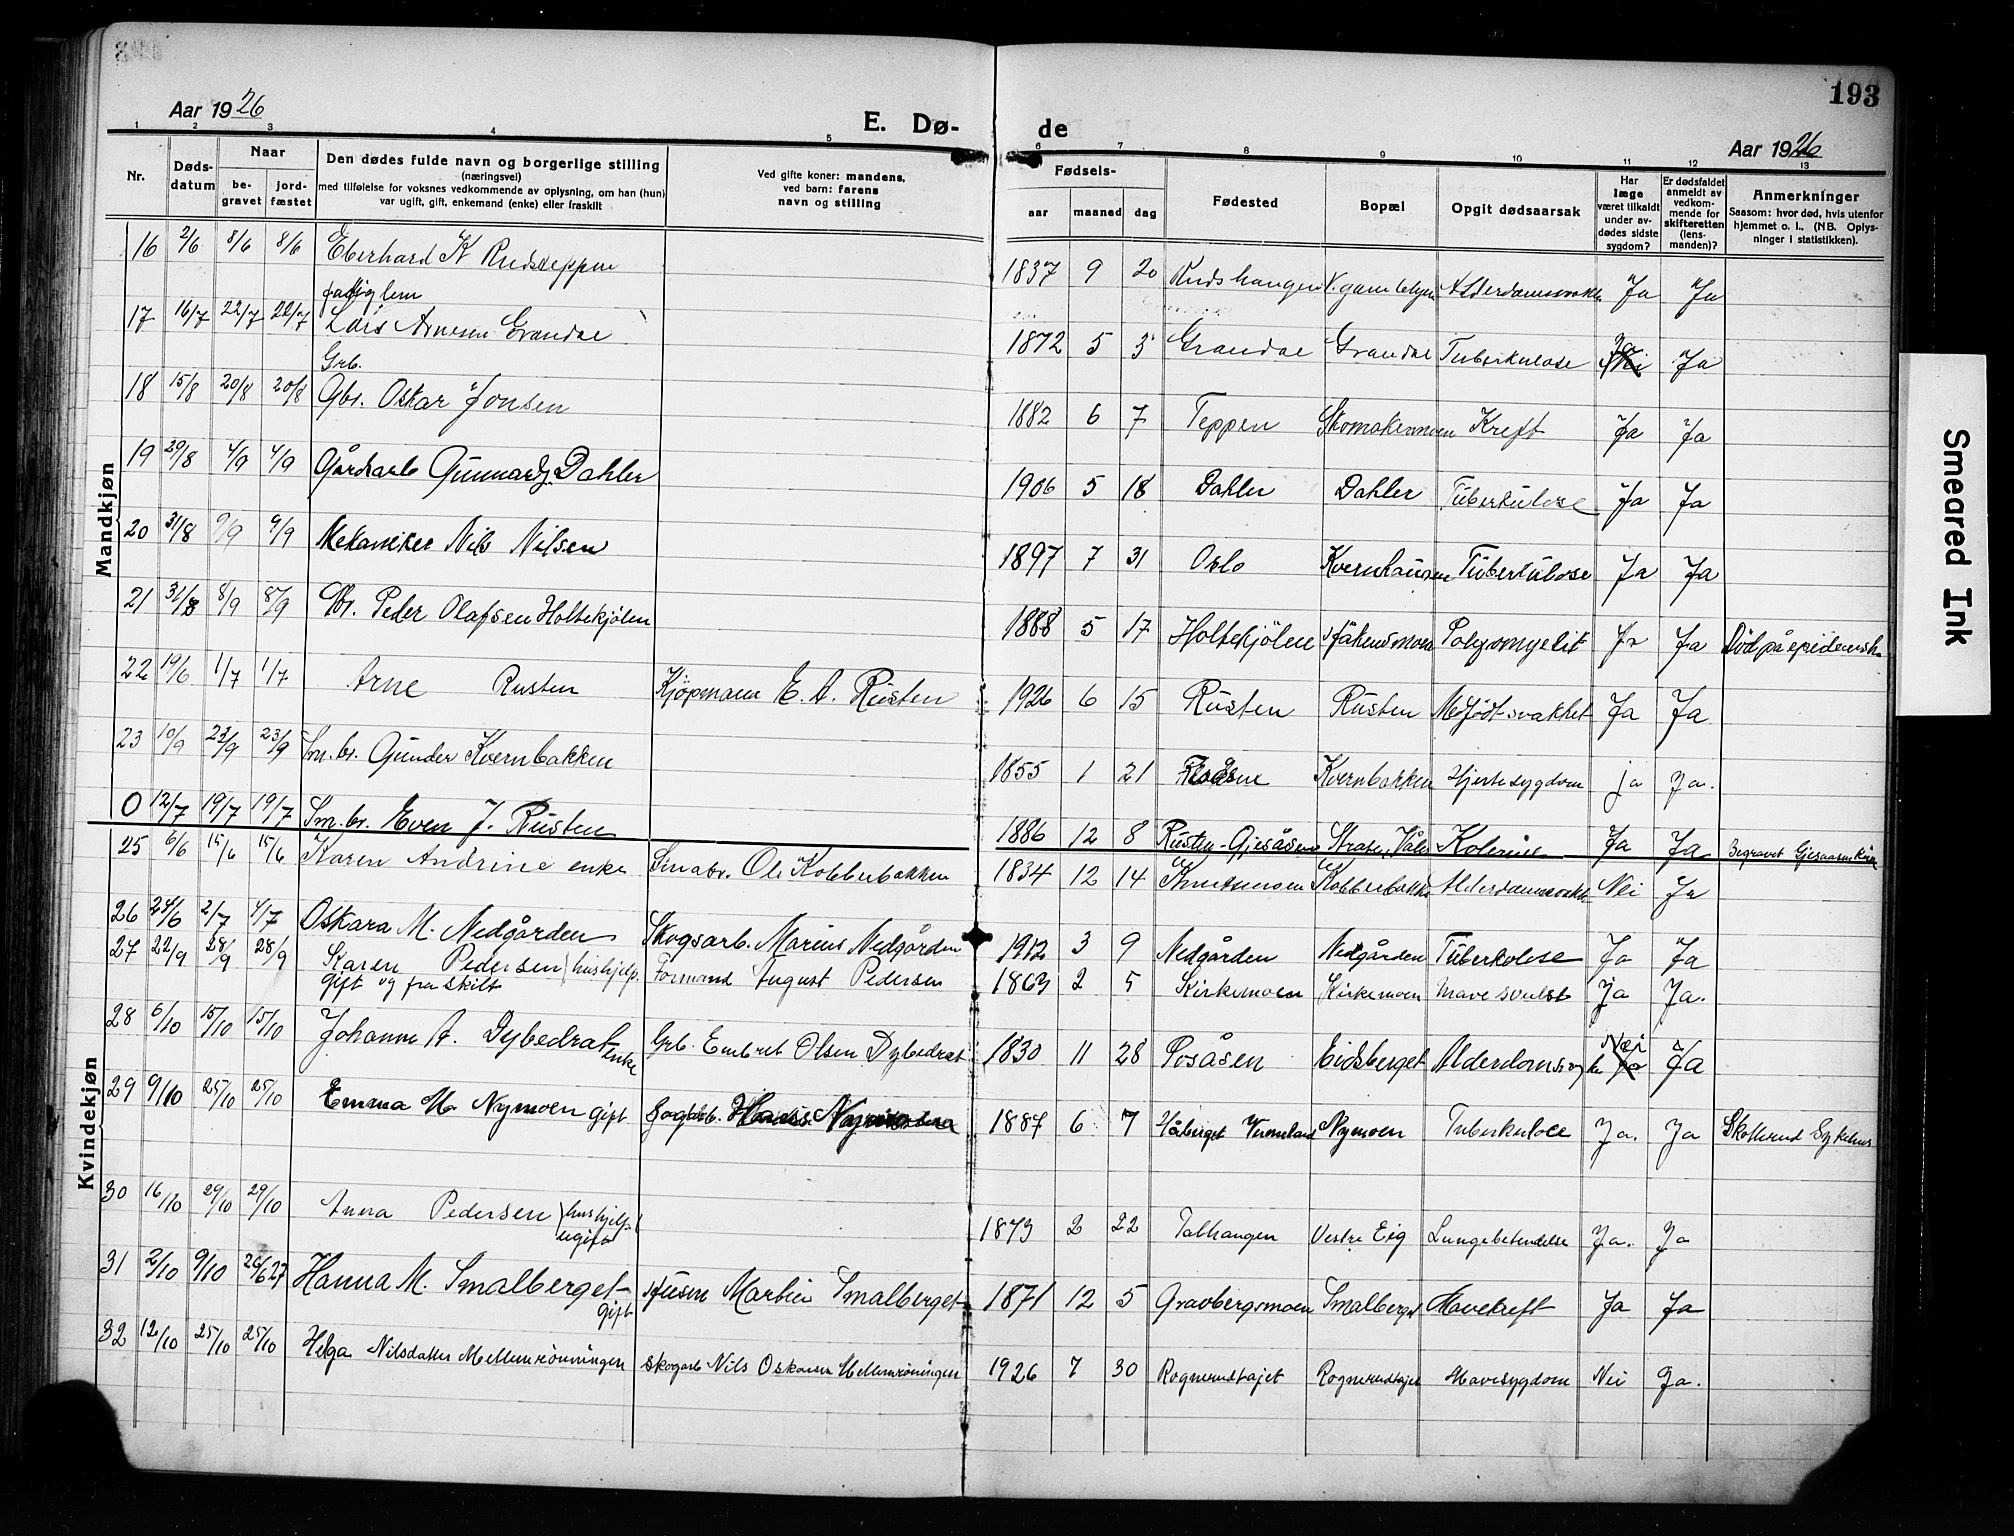 193
Aar 1926
E. Dø-
de
Aar 1926
1 2 3 4 5 6 7 8 9 10 11 12 13
Nr.
Døds-
datum
Naar
be-
gravet
jord-
fæstet
Den dødes fulde navn og borgerlige stilling
(næringsvei)
med tilføielse for voksnes vedkommende av oplysning, om han (hun)
var ugift, gift, enkemand (enke) eller fraskilt
Ved gifte koner: mandens,
ved barn: farens
navn og stilling
Fødsels-
aar maaned dag
Fødested
Bopæl
Opgit dødsaarsak
Har
læge
været tilkaldt
under av-
dødes sidste
sygdom?
Er dødsfaldet
anmeldt av
vedkom-
mende for
skifteretten
(lens-
manden)?
Anmerkninger
Saasom: hvor død, hvis utenfor
hjemmet o. l., (NB. Oplys-
ninger i statistikken).
Mandkjøn
16 2/6 8/6 8/6 Eberhard K Rudsteppen 1837 9 20 Rudshaugen Ja Ja
fattiglem
17 16/7 22/7 22/7 Lars Arnesen Grandae 1872 5 3 Grandae Grandae Tuberkulose Ja Ja
Grb.
18 15/8 20/8 20/8 Gbr. Oskar Jonsen 1882 6 7 Teppen Skomakermoen Kreft Ja Ja
19 29/8 4/9 4/9 Gårdsarb Gunnar Dahler 1906 5 18 Dahler Dahler Tuberkulose Ja Ja
20 31/8 9/9 9/9 Mekaniker Nils Nilsen 1897 7 31 Oslo Kvernhaugen Tuberkulose Ja Ja
21 31/8 8/9 8/9 Gbr. Peder Olafsen Holtekjølen 1888 5 17 Holtekjølen Polyomyelit Ja Ja Død på epidemish.
22 19/6 1/7 1/7 Arne Rusten Kjøpmann E. A. Rusten 1926 6 15 Rusten Rusten Medfødt svakhet Ja Ja
23 10/9 23/9 23/9 Sm.br. Gunder Kvernbakken 1855 1 21 Kvernbakken Hjertesygdom ja Ja.
0 12/7 19/7 19/7 Sm.br. Even J. Rusten 1886 12 8 Rusten-Gjesåsen Strase, Våler Ja Ja Begravet Gjesaasen Kirke
Kvindekjøn
25 6/6 15/6 15/6 Karen Andrine enke Smabr. Ole Kobberbakken 1834 12 14 Kobberbakk. Alderdomssvakh. Nei Ja
26 24/6 2/7 4/7 Oskara M. Nedgården Skogsarb. Marius Nedgården 1912 3 9 Nedgården Nedgården Tuberkolose Ja Ja
27 22/9 28/9 28/9 Karen Pedersen hushjelp. Formand August Pedersen 1863 2 5 Kirkemoen Kirkemoen Mavesvulst Ja Ja.
gift og fraskilt
28 6/10 15/10 15/10 Johanne A. Dybedrat enke Grb. Embret Olsen Dybedrat 1830 11 28 Posåsen Eidsberget Alderdomsvakh. Nei Ja
29 9/10 25/10 25/10 Emma M. Nymoen gift Hans Nymoen 1887 6 7 Håberget Vermeland Nymoen Tuberkulose Ja. Ja Skotterud Sykehus
30 16/10 29/10 29/10 Anna Pedersen hushjelp. 1873 2 22 Talhaugen Vestre Eig Lungebetendelse Ja. Ja
ugift
31 2/10 9/10 26/6 27 Hanna M. Smalberget Husm Martin Smalberget 1871 12 5 Gravbergsmoen Smalberget Mavekreft Ja Ja
gift
32 12/10 25/10 25/10 Helga Nilsdatter Mellemrønningen Skogarb Nils Oskarsen Mellemrøningen 1926 7 30 Rognerudtajet Rognerudtajet Mavesygdom Nei Ja.
Smeared Ink